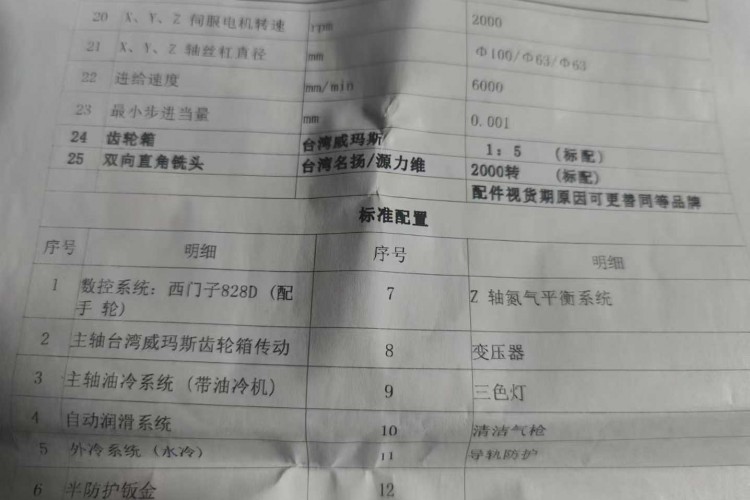 20 X、Y、Z 伺服电机转速 rpm 2000
21 X、Y、Z 轴丝杠直径 mm Φ100/Φ63/Φ63
22 进给速度 mm/min 6000
23 最小步进当量 mm 0.001
24 齿轮箱 台湾威玛斯 1：5 (标配)
25 双向直角铣头 台湾名扬/源力维 2000转 (标配)
配件视货期原因可更善同等品牌
标准配置
序号 明细 序号 明细
1 数控系统：西门子828D (配手 轮) 7 Z 轴氮气平衡系统
2 主轴台湾威玛斯齿轮箱传动 8 变压器
3 主轴油冷系统 (带油冷机) 9 三色灯
4 自动润滑系统 10 清洁气枪
5 外冷系统 (水冷) 11 导轨防护
6 半防护钣金 12